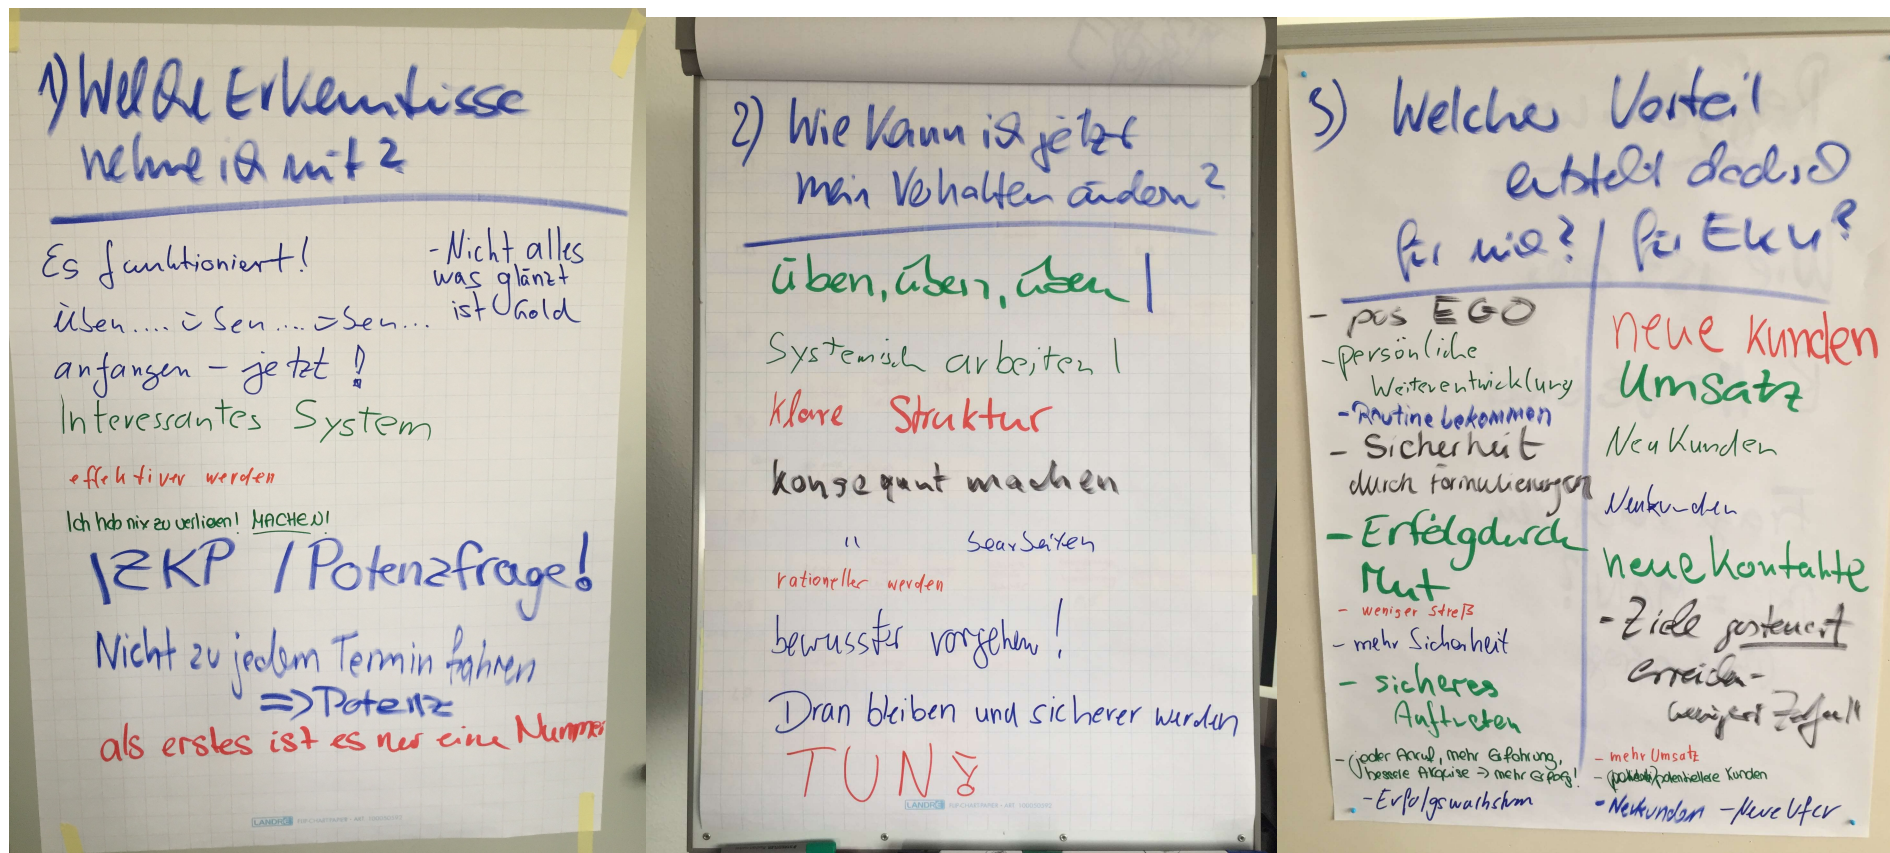 1) Welche Erkenntisse
nehme ich mit?
Es funktioniert!
- Nicht alles
was glänzt
ist Gold
üben.... üben.... üben...
anfangen – jetzt!
Interessantes System
effektiver werden
Ich hab nix zu verlieren! MACHEN!
IZKP / Potenzfrage!
Nicht zu jedem Termin fahren
=> Potenz
als erstes ist es nur eine Nummer
LANDRÉ FLIP-CHARTPAPIER • ART.
2) Wie kann ich jetzt
mein Verhalten ändern?
üben, üben, üben!
Systemisch arbeiten!
Klare Struktur
konsequent machen
" bearbeiten
rationeller werden
bewusster vorgehen!
Dran bleiben und sicherer werden
TUN!
LANDRÉ FLIP-CHARTPAPIER • ART.
3) Welcher Vorteil
entsteht dadurch
für mich? / für EKU?
- pos EGO
- persönliche
Weiterentwicklung
- Routine bekommen
- Sicherheit
durch Formulierungen
- Erfolg durch
Mut
- weniger Streß
- mehr Sicherheit
- sicheres
Auftreten
- jeder Anruf, mehr Erfahrung,
bessere Akquise => mehr Erfolg!
- Erfolgswachstum
neue Kunden
Umsatz
Neukunden
Neukunden
neue Kontakte
- Ziele gesteuert
erreichen -
weniger Zufall
- mehr Umsatz
- potentiellere Kunden
- Neukunden - Neue Ufer